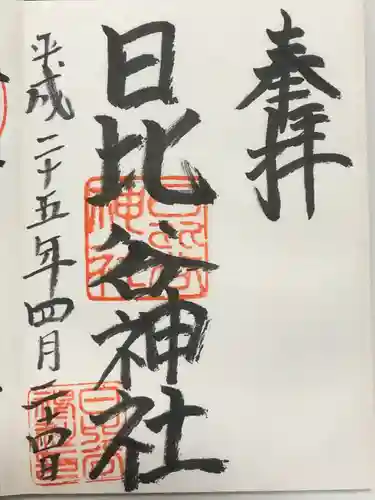 奉拝
日比谷神社
平成二十五年四月二十四日
日比谷神社